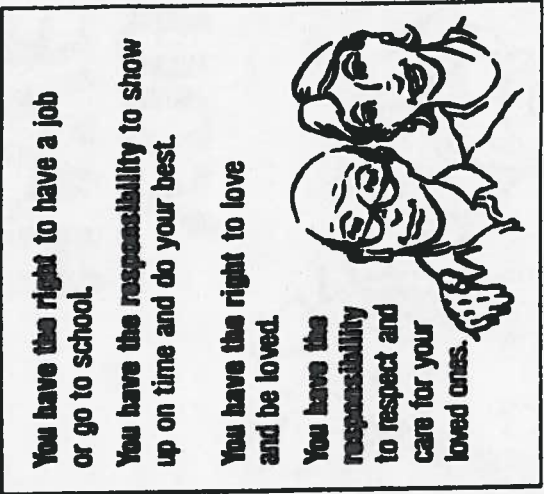 You have the right to have a job
or go to school.
You have the responsibility to show
up on time and do your best.
You have the right to love
and be loved.
You have the
responsibility
to respect and
care for your
loved ones.